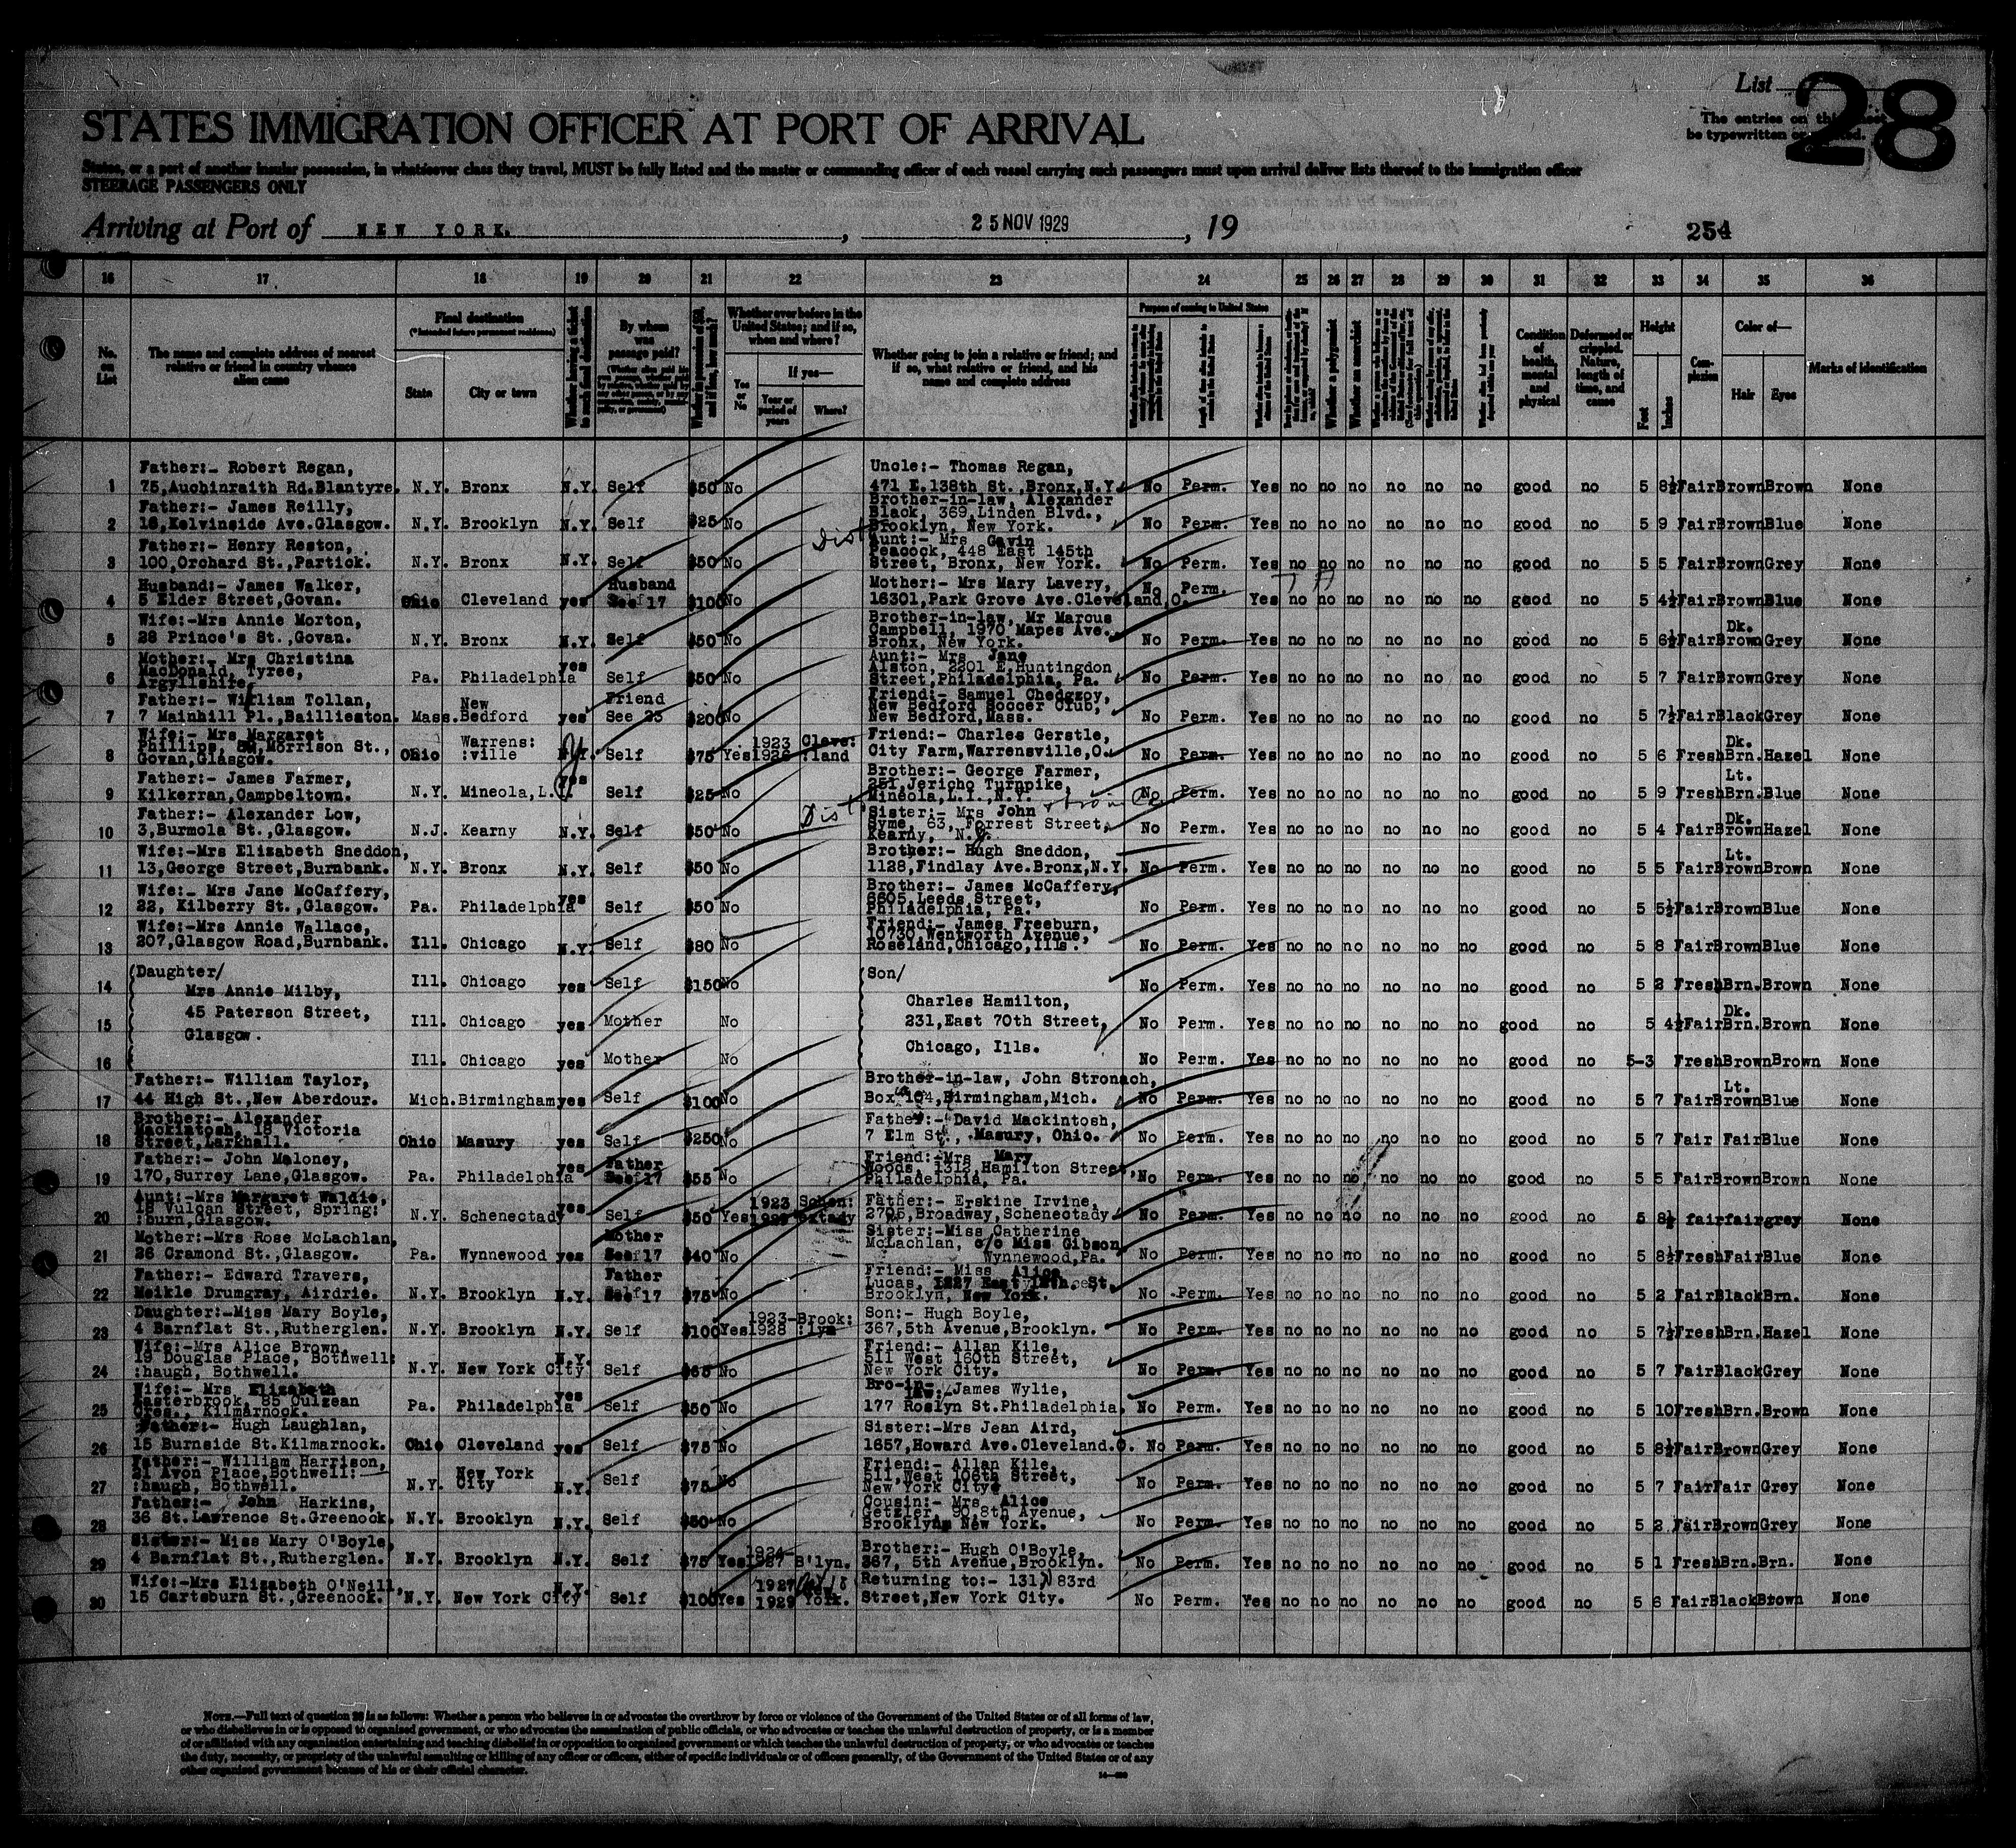 List 28
The entries on this sheet
be typewritten or printed.
STATES IMMIGRATION OFFICER AT PORT OF ARRIVAL
States, or a part of another insular possession, in whatsoever class they travel, MUST be fully listed and the master or commanding officer of each vessel carrying such passengers must upon arrival deliver lists thereof to the immigration officer
STEERAGE PASSENGERS ONLY
Arriving at Port of NEW YORK. , 25 NOV 1929 , 19
254
16 17 18 19 20 21 22 23 24 25 26 27 28 29 30 31 32 33 34 35 36
No. on List
The name and complete address of nearest relative or friend in country whence alien came
Final destination
(*Intended future permanent residence)
State City or town
By whom was passage paid?
Whether ever before in the United States; and if so, when and where?
Yes or No
If yes—
Year or period of years
Where?
Whether going to join a relative or friend; and if so, what relative or friend, and his name and complete address
Purpose of coming to United States
Whether a polygamist
Whether an anarchist
Condition of health, mental and physical
Deformed or crippled. Nature, length of time, and cause
Height
Feet Inches
Complexion
Color of—
Hair Eyes
Marks of identification
1 Father:- Robert Regan, 75,Auchinraith Rd.Blantyre. N.Y. Bronx N.Y. Self $50 No Uncle:- Thomas Regan, 471 E.138th St.,Bronx,N.Y. No Perm. Yes no no no no no no good no 5 8½ Fair Brown Brown None
2 Father:- James Reilly, 18,Kelvinside Ave.Glasgow. N.Y. Brooklyn N.Y. Self $25 No Brother-in-law, Alexander Black, 369,Linden Blvd., Brooklyn, New York. No Perm. Yes no no no no no no good no 5 9 Fair Brown Blue None
3 Father:- Henry Reston, 100,Orchard St.,Partick. N.Y. Bronx N.Y. Self $50 No Aunt:- Mrs Gavin Peacock, 448 East 145th Street, Bronx, New York. No Perm. Yes no no no no no no good no 5 5 Fair Brown Grey None
4 Husband:- James Walker, 5 Elder Street,Govan. Ohio Cleveland yes Husband See 17 $100 No Mother:- Mrs Mary Lavery, 16301,Park Grove Ave.Cleveland,O. No Perm. Yes no no no no no no good no 5 4½ Fair Brown Blue None
5 Wife:-Mrs Annie Morton, 28 Prince's St.,Govan. N.Y. Bronx N.Y. Self $50 No Brother-in-law, Mr Marcus Campbell, 1970 Mapes Ave. Bronx, New York. No Perm. Yes no no no no no no good no 5 6½ Fair Dk. Brown Grey None
6 Mother:- Mrs Christina MacDonald, Tyree, Argyllshire. Pa. Philadelphia yes Self $50 No Aunt:- Mrs Jane Alston, 2301 E.Huntingdon Street,Philadelphia, Pa. No Perm. Yes no no no no no no good no 5 7 Fair Brown Grey None
7 Father:- William Tollan, 7 Mainhill Pl.,Baillieston. Mass. New Bedford yes Friend See 23 $200 No Friend:- Samuel Chedgzoy, New Bedford Soccer Club, New Bedford,Mass. No Perm. Yes no no no no no no good no 5 7½ Fair Black Grey None
8 Wife:- Mrs Margaret Phillips, Morrison St., Govan,Glasgow. Ohio Warrens: :ville N.Y. Self $75 Yes 1923 Cleve: :land Friend:- Charles Gerstle, City Farm,Warrensville,O. No Perm. Yes no no no no no no good no 5 6 Fresh Dk. Brn. Hazel None
9 Father:- James Farmer, Kilkerran,Campbeltown. N.Y. Mineola,L.I. yes Self $25 No Brother:- George Farmer, 251,Jericho Turnpike, Mineola,L.I.,N.Y. No Perm. Yes no no no no no no good no 5 9 Fresh Lt. Brn. Blue None
10 Father:- Alexander Low, 3,Burmola St.,Glasgow. N.J. Kearny N.Y. Self $50 No Sister:- Mrs John Syme, 63, Forrest Street, Kearny, N.J. No Perm. Yes no no no no no no good no 5 4 Fair Dk. Brown Hazel None
11 Wife:-Mrs Elizabeth Sneddon, 13,George Street,Burnbank. N.Y. Bronx N.Y. Self $50 No Brother:- Hugh Sneddon, 1128,Findlay Ave.Bronx,N.Y. No Perm. Yes no no no no no no good no 5 5 Fair Lt. Brown Brown None
12 Wife:- Mrs Jane McCaffery, 22, Kilberry St.,Glasgow. Pa. Philadelphia yes Self $50 No Brother:- James McCaffery, 6605,Leeds Street, Philadelphia, Pa. No Perm. Yes no no no no no no good no 5 5½ Fair Brown Blue None
13 Wife:-Mrs Annie Wallace, 207,Glasgow Road,Burnbank. Ill. Chicago N.Y. Self $80 No Friend:- James Freeburn, 10730,Wentworth Avenue, Roseland,Chicago,Ills. No Perm. Yes no no no no no no good no 5 8 Fair Brown Blue None
14 Daughter/ Mrs Annie Milby, Ill. Chicago yes Self $150 No Son/ No Perm. Yes no no no no no no good no 5 2 Fresh Brn. Brown None
15 45 Paterson Street, Glasgow. Ill. Chicago yes Mother No Charles Hamilton, 231,East 70th Street, No Perm. Yes no no no no no no good no 5 4½ Fair Dk. Brn. Brown None
16 Ill. Chicago yes Mother No Chicago, Ills. No Perm. Yes no no no no no no good no 5-3 Fresh Brown Brown None
17 Father:- William Taylor, 44 High St.,New Aberdour. Mich. Birmingham yes Self $100 No Brother-in-law, John Stronach, Box 104,Birmingham,Mich. No Perm. Yes no no no no no no good no 5 7 Fair Lt. Brown Blue None
18 Brother:- Alexander Mackintosh, 18 Victoria Street,Larkhall. Ohio Masury yes Self $250 No Father:- David Mackintosh, 7 Elm St., Masury, Ohio. No Perm. Yes no no no no no no good no 5 7 Fair Fair Blue None
19 Father:- John Maloney, 170,Surrey Lane,Glasgow. Pa. Philadelphia yes Father See 17 $55 No Friend:-Mrs Mary Woods, 1312,Hamilton Street, Philadelphia, Pa. No Perm. Yes no no no no no no good no 5 5 Fair Brown Brown None
20 Aunt:-Mrs Margaret Waldie, 18 Vulcan Street, Spring: :burn,Glasgow. N.Y. Schenectady yes Self $50 Yes 1923 Schen: :ectady Father:- Erskine Irvine, 2705,Broadway,Schenectady No Perm. Yes no no no no no no good no 5 8½ fair fair grey None
21 Mother:-Mrs Rose McLachlan, 26 Cramond St.,Glasgow. Pa. Wynnewood yes Mother See 17 $40 No Sister:-Miss Catherine McLachlan, c/o Miss Gibson, Wynnewood,Pa. No Perm. Yes no no no no no no good no 5 8½ Fresh Fair Blue None
22 Father:- Edward Travers, Meikle Drumgray, Airdrie. N.Y. Brooklyn N.Y. Father See 17 $75 No Friend:- Miss Alice Lucas, Brooklyn, New York. No Perm. Yes no no no no no no good no 5 2 Fair Black Brn. None
23 Daughter:-Miss Mary Boyle, 4 Barnflat St.,Rutherglen. N.Y. Brooklyn N.Y. Self $100 Yes 1923- 1928 Brook: :lyn Son:- Hugh Boyle, 367,5th Avenue,Brooklyn. No Perm. Yes no no no no no no good no 5 7½ Fresh Brn. Hazel None
24 Wife:-Mrs Alice Brown, 19 Douglas Place, Bothwell: :haugh, Bothwell. N.Y. New York City N.Y. Self $65 No Friend:- Allan Kile, 511 West 160th Street, New York City. No Perm. Yes no no no no no no good no 5 7 Fair Black Grey None
25 Wife:- Mrs Elizabeth Easterbrook, 85 Culzean Cres., Kilmarnock. Pa. Philadelphia yes Self $50 No Bro-in-law:/James Wylie, 177 Roslyn St.Philadelphia. No Perm. Yes no no no no no no good no 5 10 Fresh Brn. Brown None
26 Father:- Hugh Laughlan, 15 Burnside St.Kilmarnock. Ohio Cleveland yes Self $75 No Sister:-Mrs Jean Aird, 1657,Howard Ave.Cleveland.O. No Perm. Yes no no no no no no good no 5 8½ Fair Brown Grey None
27 Father:- William Harrison, 21 Avon Place,Bothwell: :haugh, Bothwell. N.Y. New York City N.Y. Self $75 No Friend:- Allan Kile, 511,West 106th Street, New York City. No Perm. Yes no no no no no no good no 5 7 Fair Fair Grey None
28 Father:- John Harkins, 36 St.Lawrence St.Greenock. N.Y. Brooklyn N.Y. Self $50 No Cousin:- Mrs Alice Getzler, 90,8th Avenue, Brooklyn, New York. No Perm. Yes no no no no no no good no 5 2 Fair Brown Grey None
29 Sister:- Miss Mary O'Boyle, 4 Barnflat St.,Rutherglen. N.Y. Brooklyn N.Y. Self $75 Yes 1924- 1927 B'lyn. Brother:- Hugh O'Boyle, 367, 5th Avenue,Brooklyn. No Perm. Yes no no no no no no good no 5 1 Fresh Brn. Brn. None
30 Wife:-Mrs Elizabeth O'Neill, 15 Cartsburn St.,Greenock. N.Y. New York City N.Y. Self $100 Yes 1927 1929 New York. Returning to:- 131 83rd Street,New York City. No Perm. Yes no no no no no no good no 5 6 Fair Black Brown None
NOTE.—Full text of question 28 is as follows: Whether a person who believes in or advocates the overthrow by force or violence of the Government of the United States or of all forms of law,
or who disbelieves in or is opposed to organized government, or who advocates the assassination of public officials, or who advocates or teaches the unlawful destruction of property, or is a member
of or affiliated with any organization entertaining and teaching disbelief in or opposition to organized government or which teaches the unlawful destruction of property, or who advocates or teaches
the duty, necessity, or propriety of the unlawful assaulting or killing of any officer or officers, either of specific individuals or of officers generally, of the Government of the United States or of any
other organized government because of his or their official character.